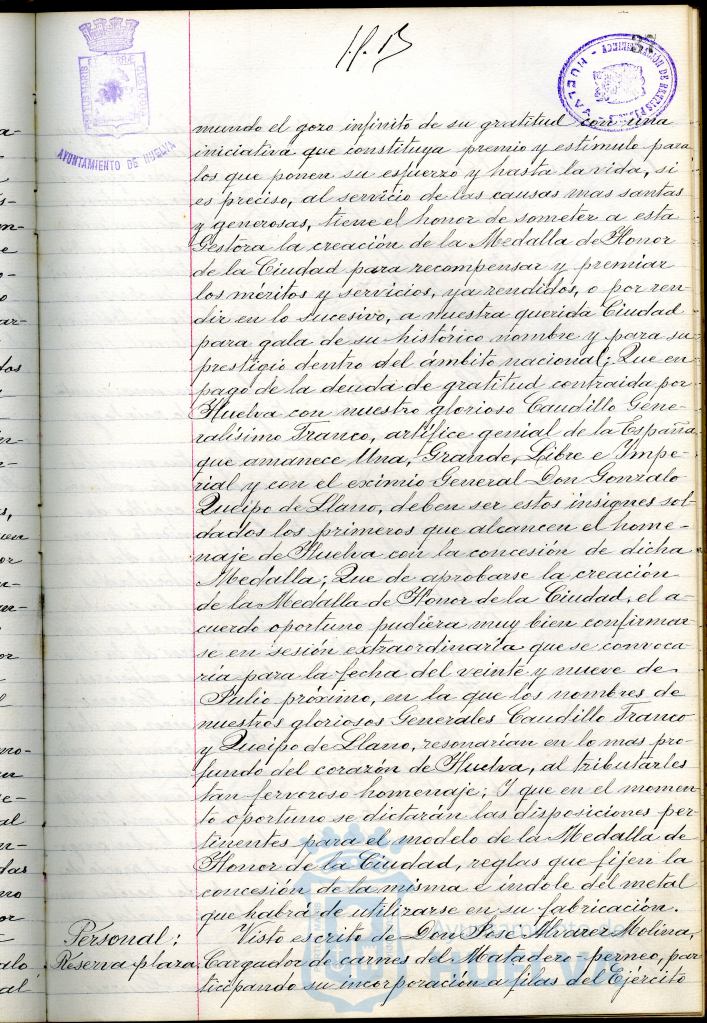 AYUNTAMIENTO DE HUELVA
mundo el gozo infinito de su gratitud con una
iniciativa que constituya premio y estímulo para
los que ponen su esfuerzo y hasta la vida, si
es preciso, al servicio de las causas mas santas
y generosas, tiene el honor de someter a esta
Gestora la creación de la Medalla de Honor
de la Ciudad para recompensar y premiar
los méritos y servicios, ya rendidos, o por ren-
dir en lo sucesivo, a nuestra querida Ciudad
para gala de su histórico nombre y para su
prestigio dentro del ámbito nacional; Que en
pago de la deuda de gratitud contraida por
Huelva con nuestro glorioso Caudillo Gene-
ralísimo Franco, artífice genial de la España
que amanece Una, Grande, Libre e Impe-
rial y con el eximio General Don Gonzalo
Queipo de Llano, deben ser estos insignes sol-
dados los primeros que alcancen el home-
naje de Huelva con la concesión de dicha
Medalla; Que de aprobarse la creación
de la Medalla de Honor de la Ciudad, el a-
cuerdo oportuno pudiera muy bien confirmar
se en sesión extraordinaria que se convoca-
ría para la fecha del veinte y nueve de
Julio próximo, en la que los nombres de
nuestros gloriosos Generales Caudillo Franco
y Queipo de Llano, resonarían en lo mas pro-
fundo del corazón de Huelva, al tributarles
tan fervoroso homenaje; Y que en el momen-
to oportuno se dictarán las disposiciones per-
tinentes para el modelo de la Medalla de
Honor de la Ciudad, reglas que fijen la
concesión de la misma e índole del metal
que habrá de utilizarse en su fabricación.
Personal: Visto escrito de Don Jose Alvarez Molina,
Reserva plaza Cargador de carnes del Matadero-perneo, par
ticipando su incorporación a filas del Ejército
Ayuntamiento de
HUELVA